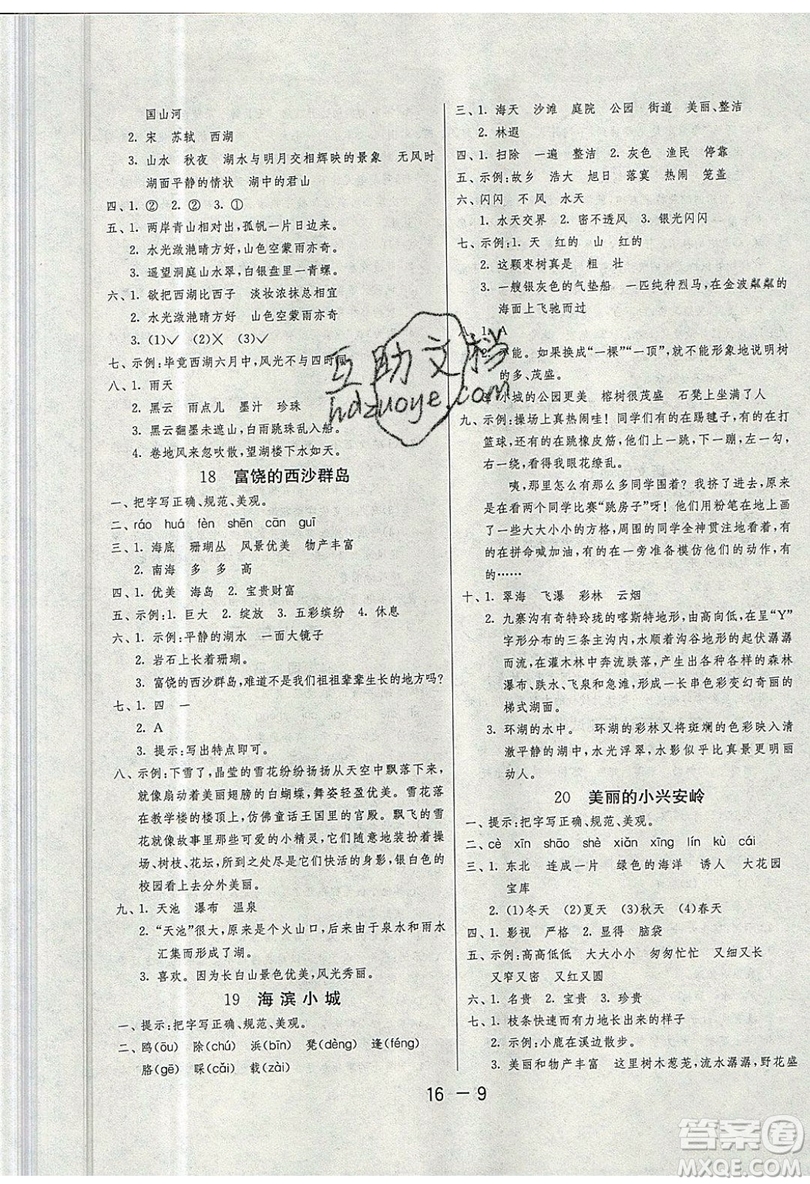 国山河
2. 宋　苏轼　西湖
3. 山水　秋夜　湖水与明月交相辉映的景象　无风时
湖面平静的情状　湖中的君山
四、1. ②　2. ②　3. ①
五、1. 两岸青山相对出，孤帆一片日边来。
2. 水光潋滟晴方好，山色空蒙雨亦奇。
3. 遥望洞庭山水翠，白银盘里一青螺。
六、1. 欲把西湖比西子　淡妆浓抹总相宜
2. 水光潋滟晴方好，山色空蒙雨亦奇。
3. (1)✓　(2)✕　(3)✓
七、示例：毕竟西湖六月中，风光不与四时同
八、1. 雨天
2. 黑云　雨点儿　墨汁　珍珠
3. 黑云翻墨未遮山，白雨跳珠乱入船。
4. 卷地风来忽吹散，望湖楼下水如天。
18　富饶的西沙群岛
一、把字写正确、规范、美观。
二、ráo　huá　fèn　shēn　cān　guī
三、1. 海底　珊瑚丛　风景优美　物产丰富
2. 南海　多　多　高
四、1. 优美　海岛　2. 宝贵财富
五、示例：1. 巨大　2. 绽放　3. 五彩缤纷　4. 休息
六、1. 示例：平静的湖水　一面大镜子
2. 岩石上长着珊瑚。
3. 富饶的西沙群岛，难道不是我们祖祖辈辈生长的地方吗？
七、1. 四　一
2. A
3. 提示：写出特点即可。
八、示例：下雪了，晶莹的雪花纷纷扬扬从天空中飘落下来，
就像扇动着美丽翅膀的白蝴蝶，舞姿轻盈优美。雪花落
在教学楼的楼顶上，仿佛童话王国里的宫殿。飘飞的雪
花就像故事里那些小精灵，它们随意地装扮操场、教学
楼、树枝、花坛，到处是它们轻松快活的身影，银白色的
校园看上去分外美丽。
九、1. 天池　瀑布　温泉
2. “天池”很大，原来是个火山口，后来由于泉水和雨水
汇集而形成了湖。
3. 喜欢。因为长白山景色优美，风光秀丽。
19　海滨小城
一、提示：把字写正确、规范、美观。
二、鸥(ōu)　除(chú)　浜(bīn)　凳(dèng)　逢(féng)
胳(gē)　睬(cǎi)　载(zài)
三、1. 海天　沙滩　庭院　公园　街道　美丽、整洁
2. 林遐
四、1. 扫除　一遍　整洁　2. 灰色　渔民　停靠
五、示例：故乡　浩大　旭日　落寞　热闹　笼盖
六、闪闪　不　风　水天
1. 水天交界　2. 密不透风　3. 银光闪闪
七、示例：1. 天　红的　山　红的
2. 这颗枣树真是　粗　壮
3. 一艘银灰色的气垫船　一匹纯种烈马　在金波粼粼的
海面上飞驰而过
不能。如果换成“一棵”“一顶”，就能形象地说明树
的多、茂盛。
小城的公园更美　榕树很茂盛　石凳上坐满了人
九、示例：操场上真热闹哇！同学们有的踢毽子，有的打
篮球，还有的跳橡皮筋，他们一会儿左一下，一会儿右
一下，看的人眼花缭乱。
咦，那里怎么有那么多同学围着？我挤了进去，原
来是有两个同学比赛“跳房子”，只见他们在地上画
了一些大大小小的方格，周围的同学全神贯注地看着，
有的在拼命喊加油，有的在一旁准备模仿他们的动作，有
的……
十、1. 翠海　飞瀑　彩林　云烟
2. 九寨沟有奇特玲珑的喀斯特地形，由三条呈“Y”
字形分布的三条主沟，水顺着沟谷地形的起伏潺潺
跌落，在灌木林中四散开来，产生出各式各样的森林
瀑布、跌水、飞流等，形成色彩变幻奇丽的
梯式湖面。
3. 环湖的水中。　环湖的彩林又将斑斓的色彩映入清
澈平静的湖中，水光浮翠，水影似乎比水面更丰富
动人。
20　美丽的小兴安岭
一、提示：把字写正确、规范、美观。
二、cè　xīn　shāo　shè　xiǎn　xīng　lín　kù　cái
三、1. 东北　连成一片　绿色的海洋　诱人　大花园
宝库
2. (1)冬天　(2)夏天　(3)秋天　(4)春天
四、1. 影视　严格　2. 显得　脑袋
五、示例：高高低低　大大小小　匆匆忙忙　又短又细
又窄又密　又红又圆
六、1. 名贵　2. 宝贵　3. 珍贵
七、1. 枝条快速而有力地长出来的样子
2. 示例：小鹿在溪边散步。
3. 美丽和物产丰富　这里树木葱茏，流水潺潺，野花盛
16 — 9
互助文档
hdzuoye.com
答案圈
MXQE.COM